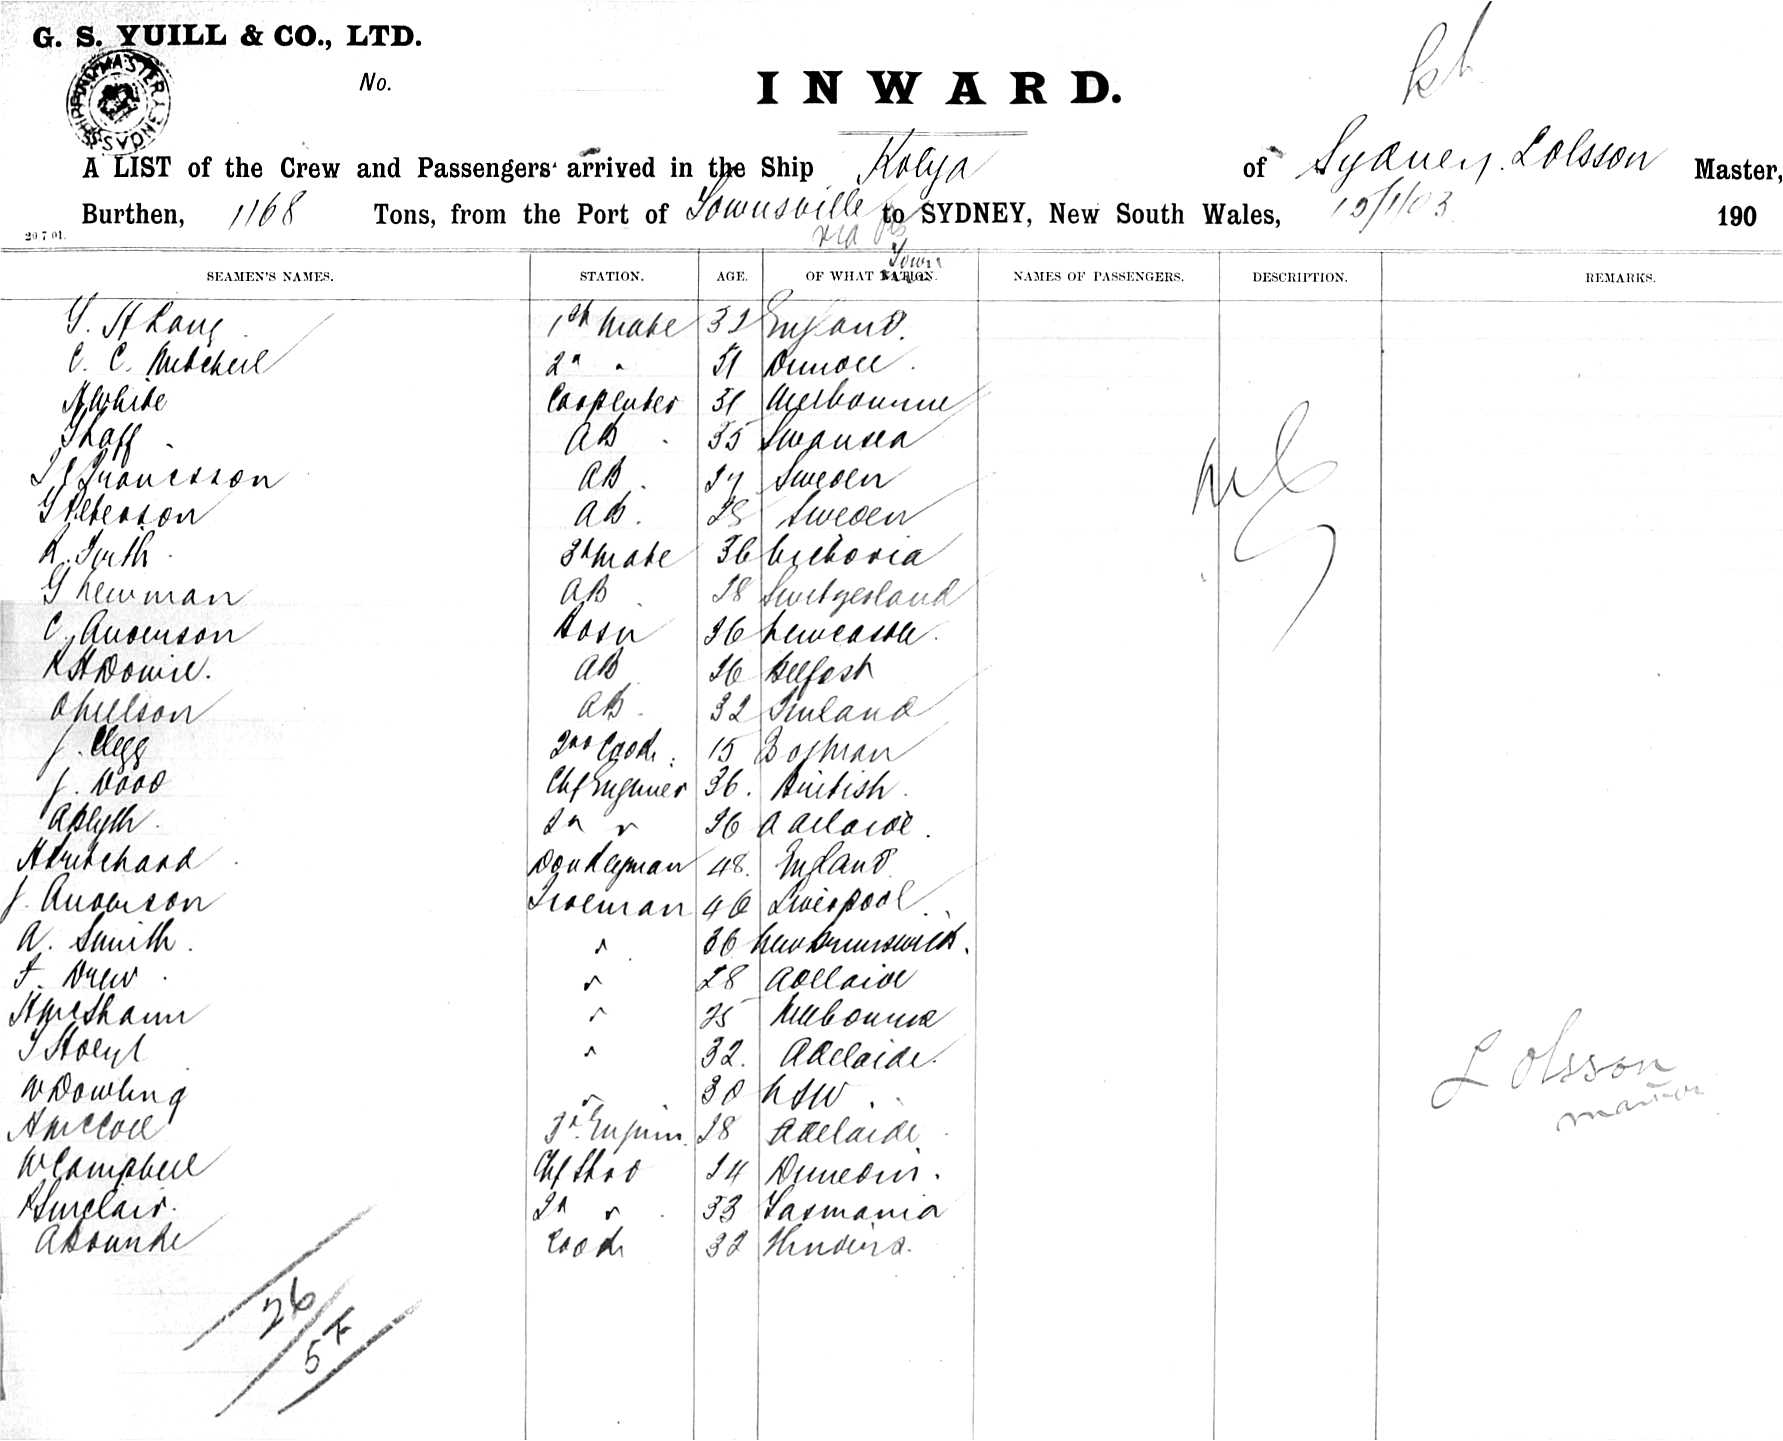 G. S. YUILL & CO., LTD.
SHIPPING MASTER SYDNEY
No.
INWARD.
A LIST of the Crew and Passengers arrived in the Ship Kolya of Sydney. L Olsson Master,
Burthen, 1168 Tons, from the Port of Townsville to SYDNEY, New South Wales, 15/1/03 190
via
29 7 01.
SEAMEN'S NAMES. STATION. AGE. OF WHAT NATION. NAMES OF PASSENGERS. DESCRIPTION. REMARKS.
G. H Lang 1st Mate 32 England.
C. C. Mitchell 2d " 51 Dundee.
White Carpenter 31 Melbourne
AB 35 Swansea
Francsson AB. 27 Sweden
G Peterson AB. 28 Sweden
3d Mate 36 Victoria
G Newman AB 28 Switzerland
C. Anderson Bosn 26 Newcastle.
AB 26 Belfast
O Neilson AB. 32 Finland
J. Clegg 2nd Cook. 15
J. Wood Chf Engineer 36. British.
A Blyth. 2d " 26 Adelaide.
H Pritchard Donkeyman 48. England.
J. Anderson Fireman 46 Liverpool.
A. Smith. " 36 New Brunswick.
F. Drew. " 28 Adelaide
" 25 Melbourne
" 32. Adelaide.
W Dowling " 30 NSW.
A McColl 3d Engin. 28 Adelaide
W Campbell Chf Stwd 24 Dunedin.
Sinclair. 2d " 33 Tasmania
A Bourke Cook 32
Nil
L Olsson
master
26